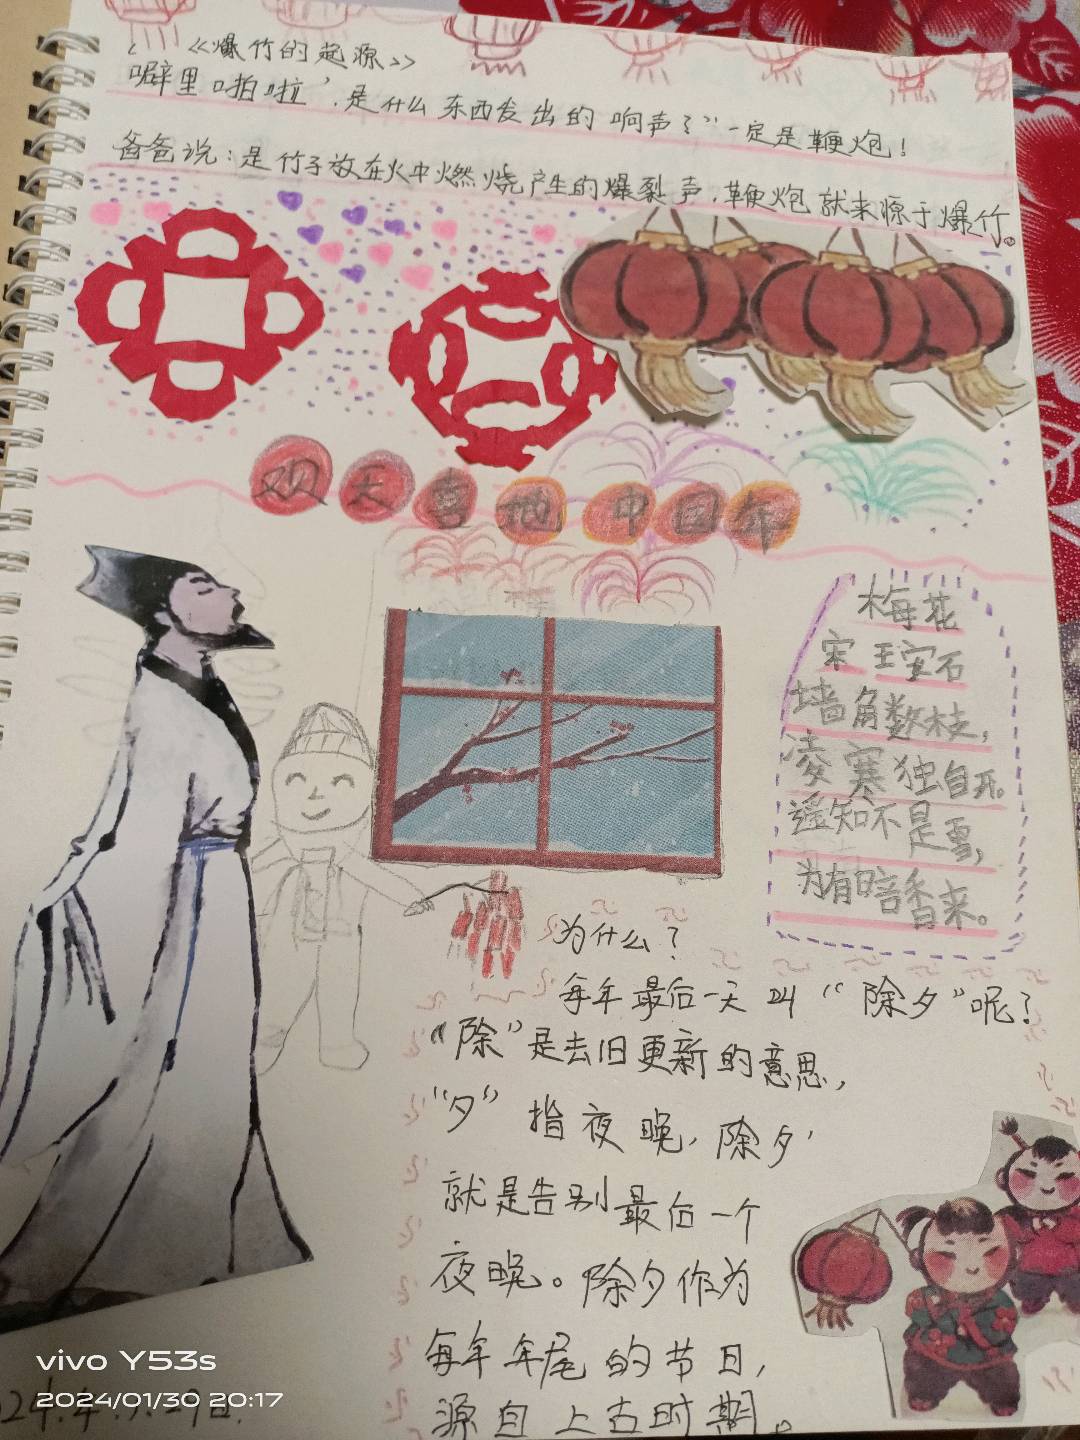 《爆竹的起源》
噼里啪啦，是什么东西发出的响声？”一定是鞭炮！
爸爸说：是竹子放在火中燃烧产生的爆裂声，鞭炮就来源于爆竹。
欢天喜地中国年
梅花
宋 王安石
墙角数枝，
凌寒独自开。
遥知不是雪，
为有暗香来。
为什么？
每年最后一天叫“除夕”呢？
“除”是去旧更新的意思，
“夕”指夜晚，除夕，
就是告别最后一个
夜晚。除夕作为
每年年尾的节日，
源自上古时期。
vivo Y53s
2024/01/30 20:17